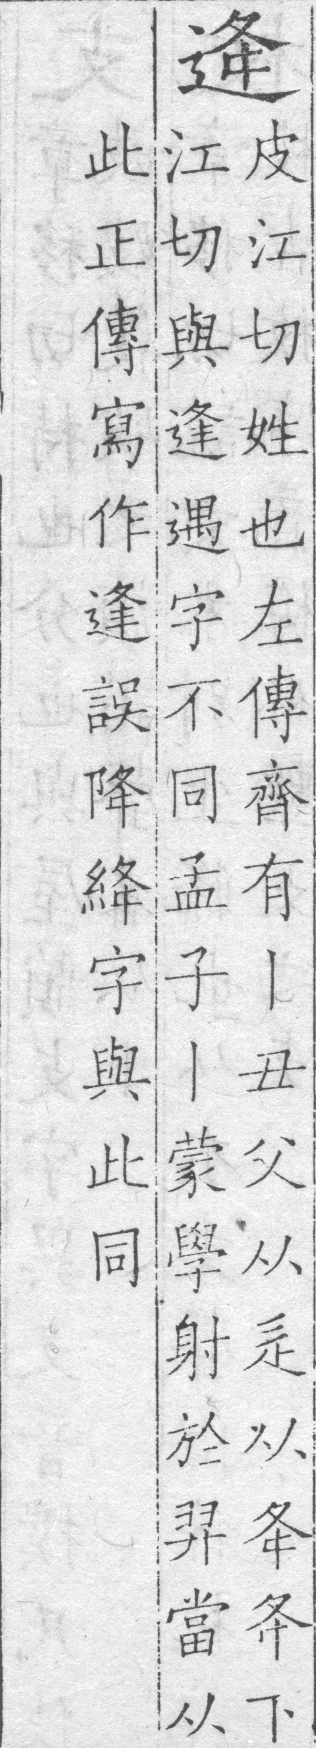 逄
皮江切姓也左傳齊有丨丑父从辵从夅夅下
江切與逢遇字不同孟子丨蒙學射於羿當从
此正傳寫作逢誤降絳字與此同